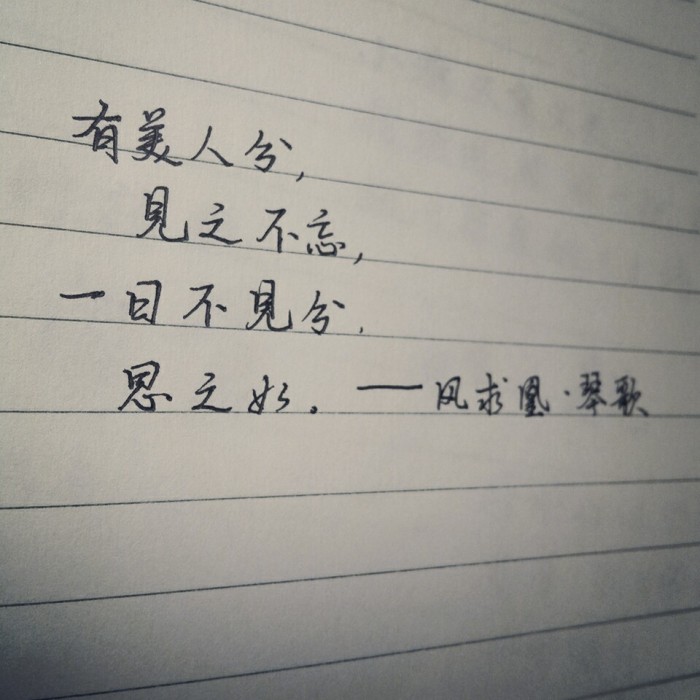 有美人兮,
見之不忘,
一日不見兮,
思之如. ——凤求凰·琴歌